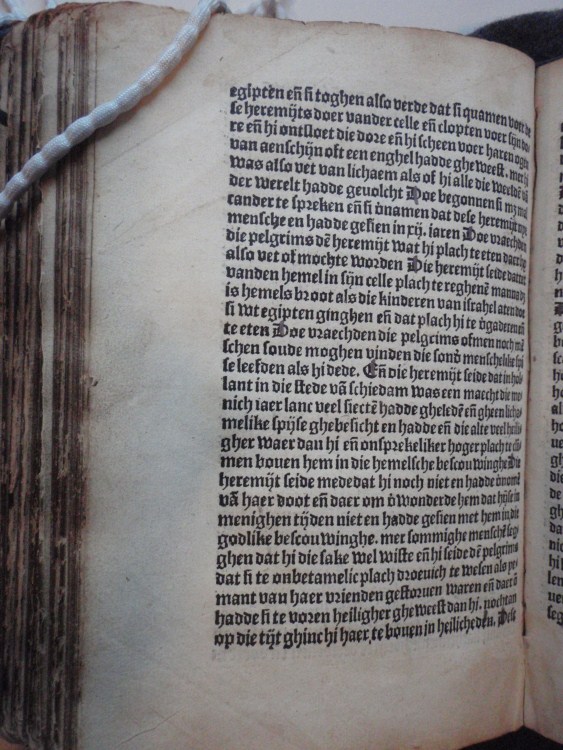 egiptẽ eñ si toghen also verde dat si quamen voer
se heremijts doer vander celle eñ clopten voer sijn
re eñ hi ontsloet die dore eñ hi scheen voer haren
van aenschijn oft een enghel hadde gheweest. mer hi
was also vet van lichaem als of hi alle die weeldẽ
der werelt hadde geuolcht Doe begonnen si
cander te spreken eñ si vnamen dat dese heremijt
mensche en hadde gesien in xij. iaren Doe vraechden
die pelgrims dẽ heremijt wat hi plach te eten
also vet of mochte worden Die heremijt seide
vanden hemel in sijn celle plach te reghenẽ manna
is hemels broot als die kinderen van israhel aten
si wt egipten ginghen eñ dat plach hi te vgaderen eñ
te eten Doe vraechden die pelgrims ofmen noch
schen soude moghen vinden die sonð menschelike
se leefden als hi dede. Eñ die heremijt seide dat in hol
lant in die stede vã schiedam was een macht die
nich iaer lanc veel siectẽ hadde ghelede eñ gheen licha
melike spijse ghebesicht en hadde eñ die alte veel heili
gher waer dan hi eñ onsprekeliker hoger plach te
men bouen hem in die hemelsche bescouwinghe Die
heremijt seide mede dat hi noch niet en hadde vnomẽ
vã haer doot eñ daer om vwonderde hem dat hijse in
menighen tijden niet en hadde gesien met hem in die
godlike bescouwinghe. mer sommighe menschẽ seg
ghen dat hi die sake wel wiste eñ hi seide dẽ pelgrims
dat si te onbetamelic plach droeuich te wesen als
mant van haer vrienden gestoruen waren eñ daer
hadde si te voren heiligher gheweest dan hi. nochtan
op die tijt ghinc hi haer te bouen in heilicheden.